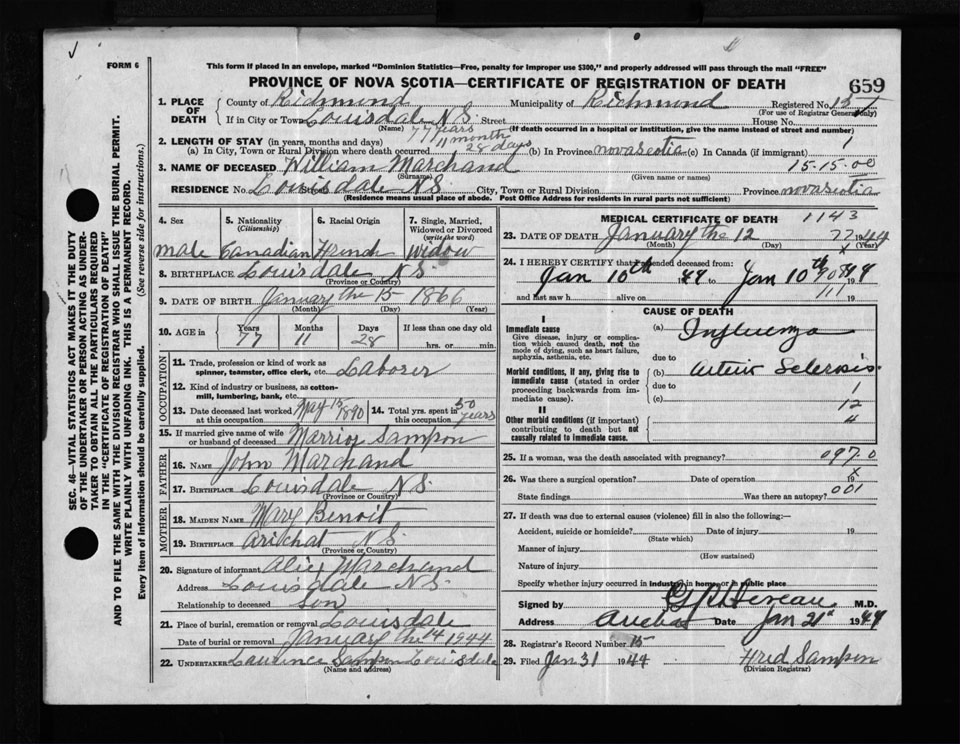 FORM 6
This form if placed in an envelope, marked "Dominion Statistics—Free, penalty for improper use $300," and properly addressed will pass through the mail "FREE"
PROVINCE OF NOVA SCOTIA—CERTIFICATE OF REGISTRATION OF DEATH
659
SEC. 46—VITAL STATISTICS ACT MAKES IT THE DUTY
OF THE UNDERTAKER OR PERSON ACTING AS UNDER-
TAKER TO OBTAIN ALL THE PARTICULARS REQUIRED
IN THE "CERTIFICATE OF REGISTRATION OF DEATH"
AND TO FILE THE SAME WITH THE DIVISION REGISTRAR WHO SHALL ISSUE THE BURIAL PERMIT.
WRITE PLAINLY WITH UNFADING INK. THIS IS A PERMANENT RECORD.
Every item of information should be carefully supplied. (See reverse side for instructions.)
1. PLACE OF DEATH County of Richmond Municipality of Richmond Registered No. 15
(For use of Registrar General only)
If in City or Town Louisdale N.S. Street House No.
(Name) (If death occurred in a hospital or institution, give the name instead of street and number)
77 years
11 month
28 days
2. LENGTH OF STAY (in years, months and days)
(a) In City, Town or Rural Division where death occurred (b) In Province nova scotia (c) In Canada (if immigrant) 1
3. NAME OF DECEASED William Marchand 15-15-00
(Surname) (Given name or names)
RESIDENCE No. Louisdale N.S. City, Town or Rural Division Province nova scotia
(Residence means usual place of abode. Post Office Address for residents in rural parts not sufficient)
4. Sex 5. Nationality (Citizenship) 6. Racial Origin 7. Single, Married, Widowed or Divorced (write the word)
male Canadian Frinch Widow
8. BIRTHPLACE Louisdale N.S.
9. DATE OF BIRTH January the 15 1866
(Month) (Day) (Year)
10. AGE in Years Months Days If less than one day old
77 11 28 hrs. or min.
OCCUPATION
11. Trade, profession or kind of work as spinner, teamster, office clerk, etc. Laborer
12. Kind of industry or business, as cotton-mill, lumbering, bank, etc.
13. Date deceased last worked at this occupation May 15 1890 14. Total yrs. spent in this occupation 50 years
15. If married give name of wife or husband of deceased Sampson
FATHER
16. NAME John Marchand
17. BIRTHPLACE Louisdale N.S.
(Province or Country)
MOTHER
18. MAIDEN NAME Mary Benoit
19. BIRTHPLACE Arichat N.S.
(Province or Country)
20. Signature of informant Marchand
Address Louisdale N.S.
Relationship to deceased son
21. Place of burial, cremation or removal Louisdale
Date of burial or removal January the 14 1944
22. UNDERTAKER Laurence Sampson Louisdale
(Name and address)
MEDICAL CERTIFICATE OF DEATH 1143
23. DATE OF DEATH January the 12 77 1944
(Month) (Day) (Year)
24. I HEREBY CERTIFY that I attended deceased from:
Jan 10th 1944 Jan 10th
and last saw h alive on 111 19
CAUSE OF DEATH
I
Immediate cause
Give disease, injury or complication which caused death, not the mode of dying, such as heart failure, asphyxia, asthenia, etc.
(a) Influenza
due to
Morbid conditions, if any, giving rise to immediate cause (stated in order proceeding backwards from immediate cause).
(b) Arterio Sclerosis
due to 1
(c) 12
II
Other morbid conditions (if important) contributing to death but not causally related to immediate cause.
4
25. If a woman, was the death associated with pregnancy? 097.0
26. Was there a surgical operation? Date of operation x 19
State findings Was there an autopsy? 001
27. If death was due to external causes (violence) fill in also the following:—
Accident, suicide or homicide? Date of injury 19
(State which)
Manner of injury
(How sustained)
Nature of injury
Specify whether injury occurred in industry, in home or in public place
Signed by M.D.
Address Arichat Date Jan 21st 1944
28. Registrar's Record Number 15
29. Filed Jan 31 1944 Fred Sampson
(Division Registrar)